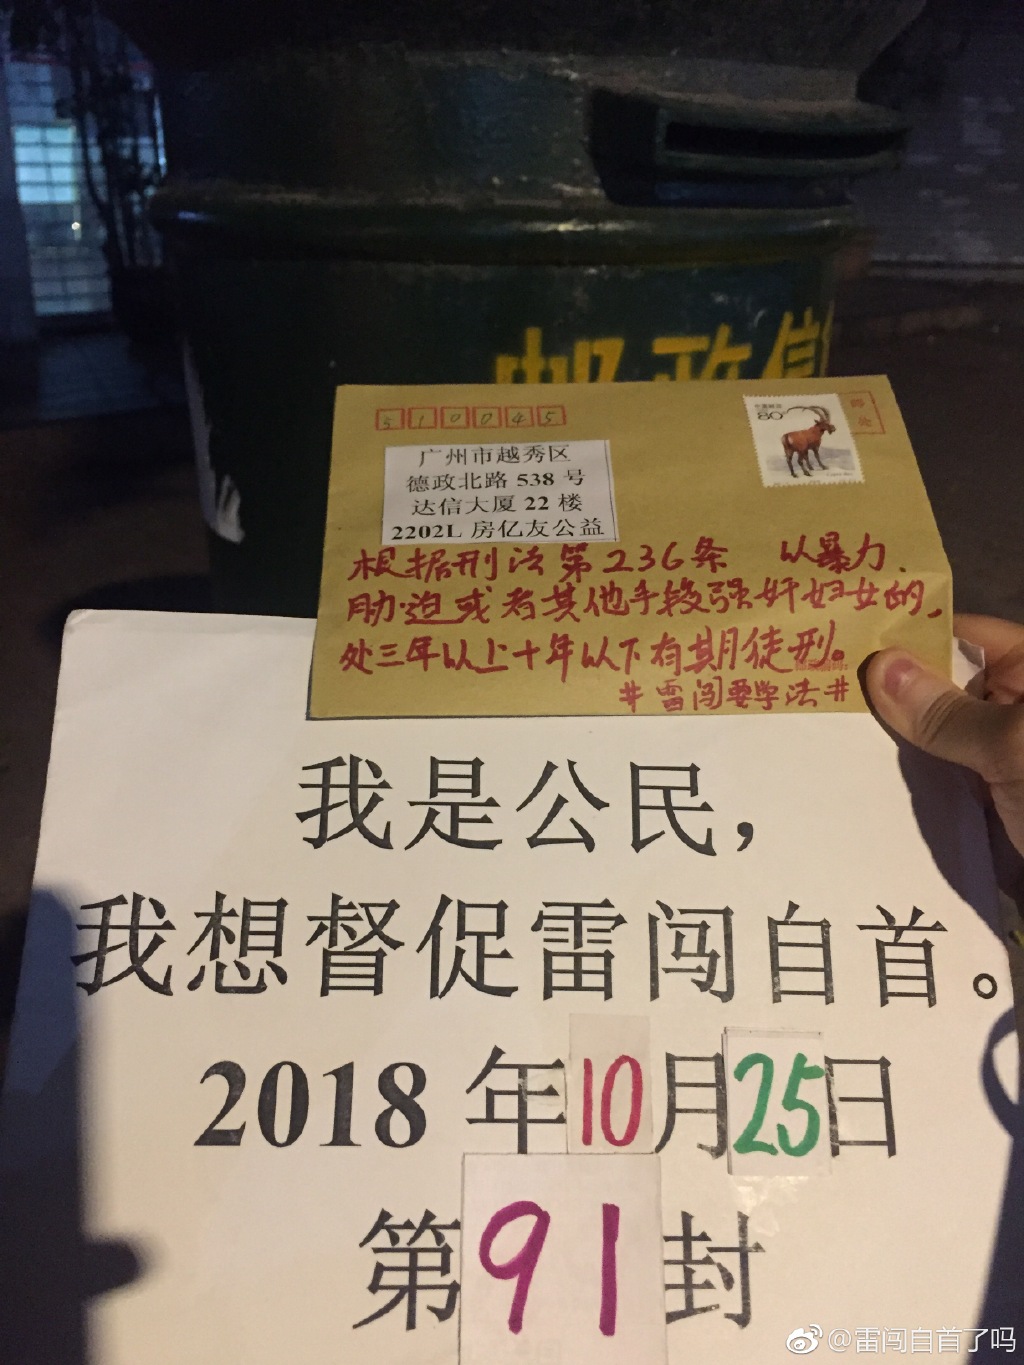 邮政信
510045
中国邮政
80
邮论
广州市越秀区
德政北路 538 号
达信大厦 22 楼
2202L 房亿友公益
根据刑法第236条 以暴力、
胁迫或者其他手段强奸妇女的，
处三年以上十年以下有期徒刑。
#雷闯要学法#
我是公民，
我想督促雷闯自首。
2018 年10月25日
第91封
@雷闯自首了吗